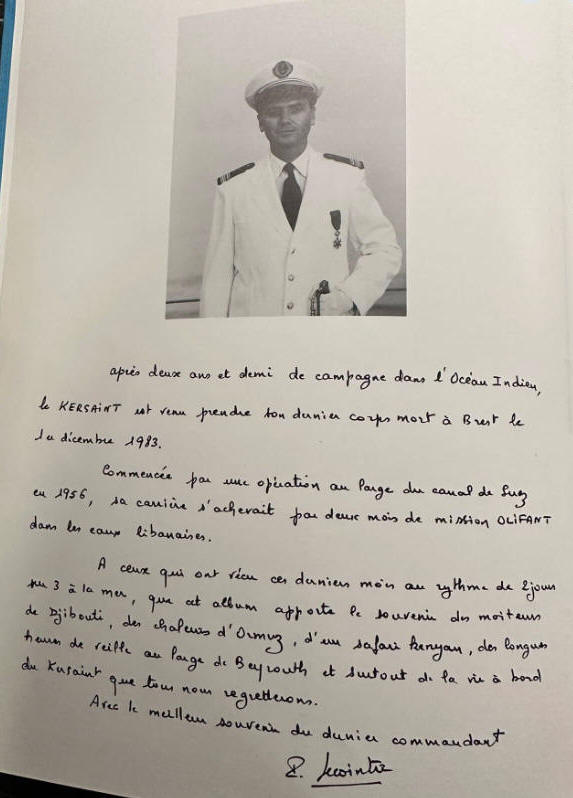 après deux ans et demi de campagne dans l'Océan Indien,
le KERSAINT est venu prendre son dernier corps mort à Brest le
1er décembre 1983.
Commencée par une opération au large du canal de Suez
en 1956, sa carrière s'achevait par deux mois de mission OLIFANT
dans les eaux libanaises.
A ceux qui ont vécu ces derniers mois au rythme de 2 jours
sur 3 à la mer, que cet album apporte le souvenir des moiteurs
de Djibouti, des chaleurs d'Ormuz, d'un safari kenyan, des longues
heures de veille au large de Beyrouth et surtout de la vie à bord
du Kersaint que tous nous regretterons.
Avec le meilleur souvenir du dernier commandant